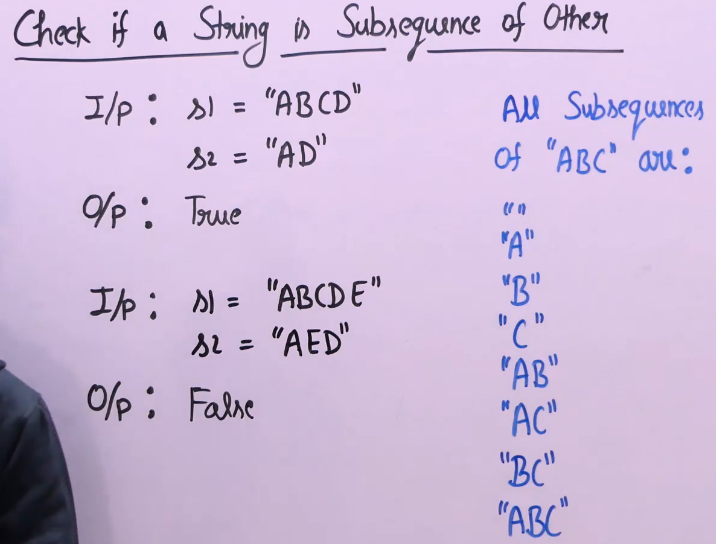 Check if a String is Subsequence of Other
I/p : s1 = "ABCD"
s2 = "AD"
O/p : True
I/p : s1 = "ABCDE"
s2 = "AED"
O/p : False
All Subsequences
Of "ABC" are:
""
"A"
"B"
"C"
"AB"
"AC"
"BC"
"ABC"